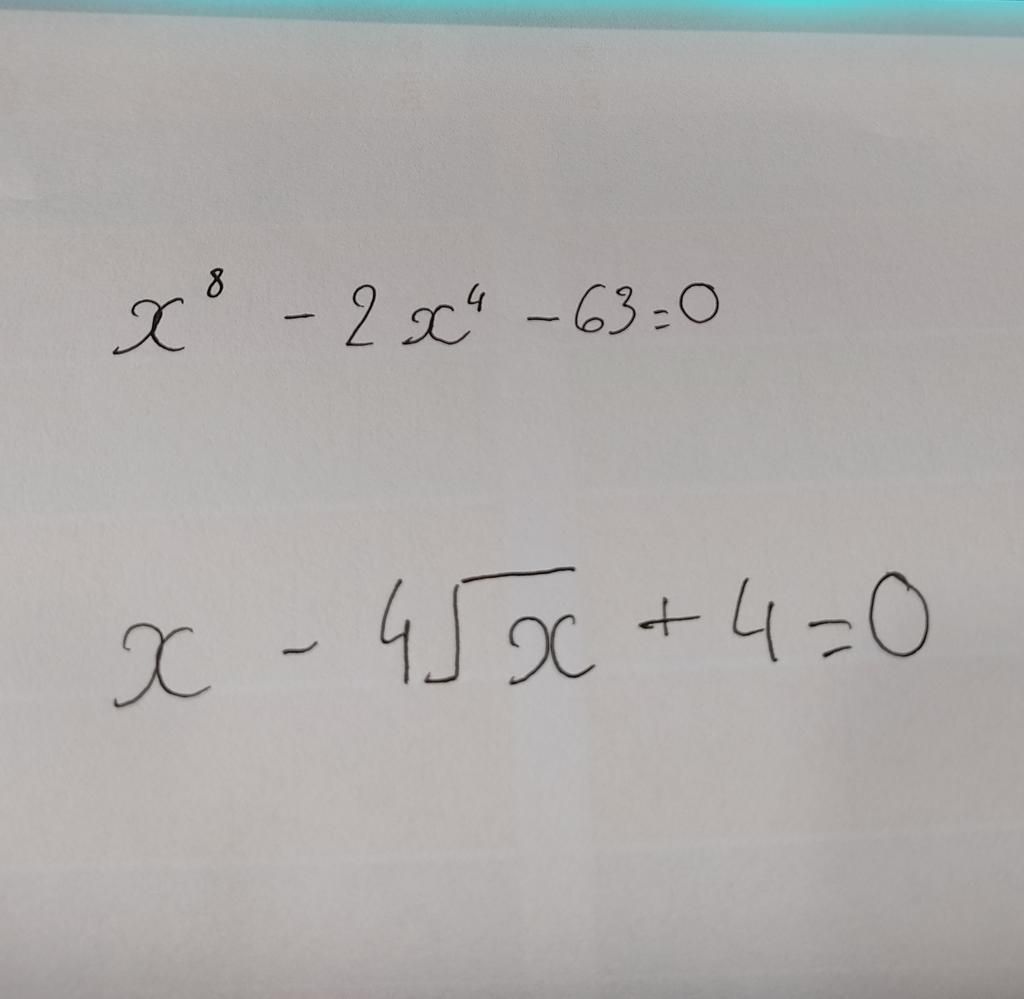 x⁸ - 2x⁴ - 63 = 0
x - 4√x + 4 = 0